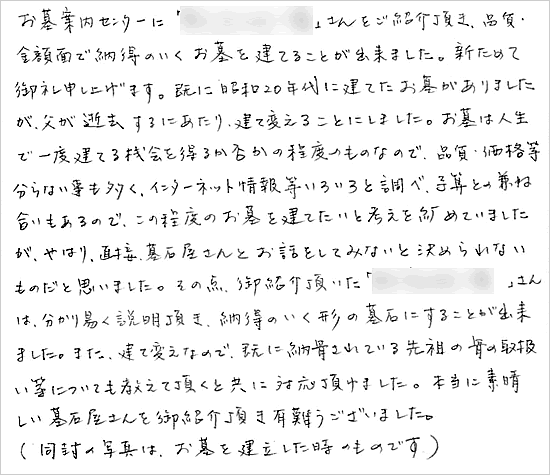 お墓案内センターに「　　　」さんをご紹介頂き、品質・
金額面で納得のいくお墓を建てることが出来ました。新ためて
御礼申し上げます。既に昭和20年代に建てたお墓がありました
が、父が逝去するにあたり、建て変えることにしました。お墓は人生
で一度建てる機会を得るか否かの程度のものなので、品質・価格等
分らない事も多く、インターネット情報等いろいろと調べ、予算との兼ね
合いもあるので、この程度のお墓を建てたいと考えを纏めていました
が、やはり、直接、墓石屋さんとお話をしてみないと決められない
ものだと思いました。その点、御紹介頂いた「　　　」さん
は、分かり易く説明頂き、納得のいく形の墓石にすることが出来
ました。また、建て変えなので、既に納骨されている先祖の骨の取扱
い等についても教えて頂くと共に対応頂けました。本当に素晴
しい墓石屋さんを御紹介頂き有難うございました。
(同封の写真は、お墓を建立した時のものです)